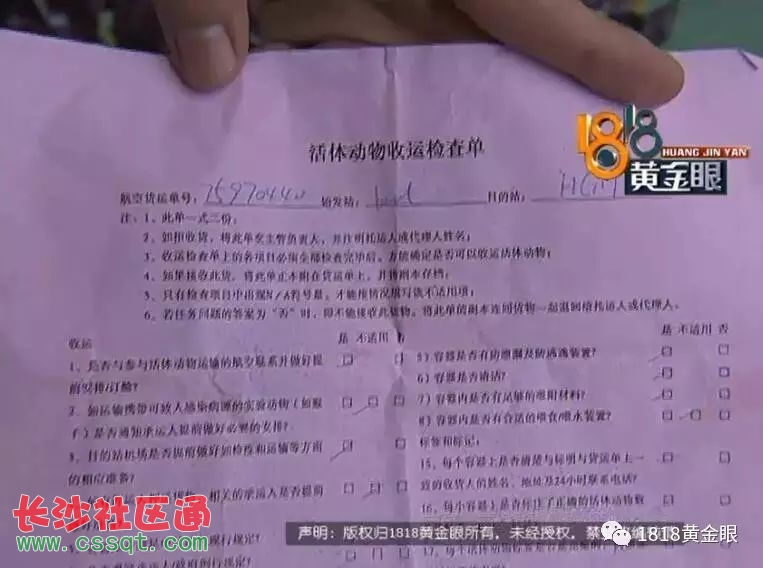 活体动物收运检查单
1818
HUANG JIN YAN
黄金眼
航空货运单号: 始发站: 目的站:
注: 1、此单一式三份;
2、如拒收货, 将此单交主管负责人, 并注明托运人或代理人姓名;
3、收运检查单上的各项目必须全部检查完毕后, 方能确定是否可以收运活体动物;
4、如果接收此货, 将此单正本附在货运单上, 并将副本存档;
5、只有检查项目中出现N/A符号是, 才能维情况填写该不适用项;
6、若任务问题的答案为“否”时, 即不能接收此货物, 将此单的副本连同货物一起退回给托运人或代理人。
收运 是 不适用 否
1、是否与参与活体动物运输的航空联系并做好提
前安排/订舱?
2、如运输携带可致人感染病源的实验动物(如猴
子)是否通知承运人提前做好必要的安排?
3、目的站机场是否提前做好如检疫和运输等方面
的相应准备?
相关的承运人是否提前
做好安排?
是 不适用 否
5)容器是否有防泄漏及防逃逸装置?
6)容器是否清洁?
7)容器内是否有足够的吸附材料?
8)容器内是否有合适的喂食/喂水装置?
标签和标记:
15、每个容器上是否清楚与标明与货运单上一
致的收货人的姓名、地址及24小时联系电话?
16、每个容器上是否标注了正确的活体动物数
长沙社区通
www.cssqt.com
声明:版权归1818黄金眼所有, 未经授权, 禁
1818黄金眼